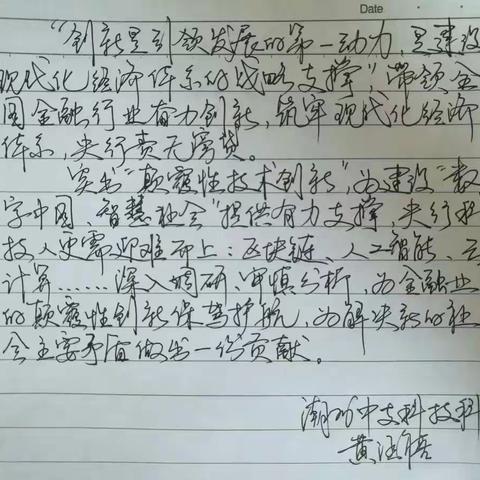 Date
“创新是引领发展的第一动力,是建设
现代化经济体系的战略支撑”,带领全
国金融行业奋力创新,筑牢现代化经济
体系,央行责无旁贷。
突出“颠覆性技术创新”,为建设“数
字中国、智慧社会”提供有力支撑,央行科
技人更需迎难而上:区块链、人工智能、云
计算……深入调研、审慎分析,为金融业
的颠覆性创新保驾护航,为解决新的社
会主要矛盾做出一份贡献。
潮州中支科技科
黄